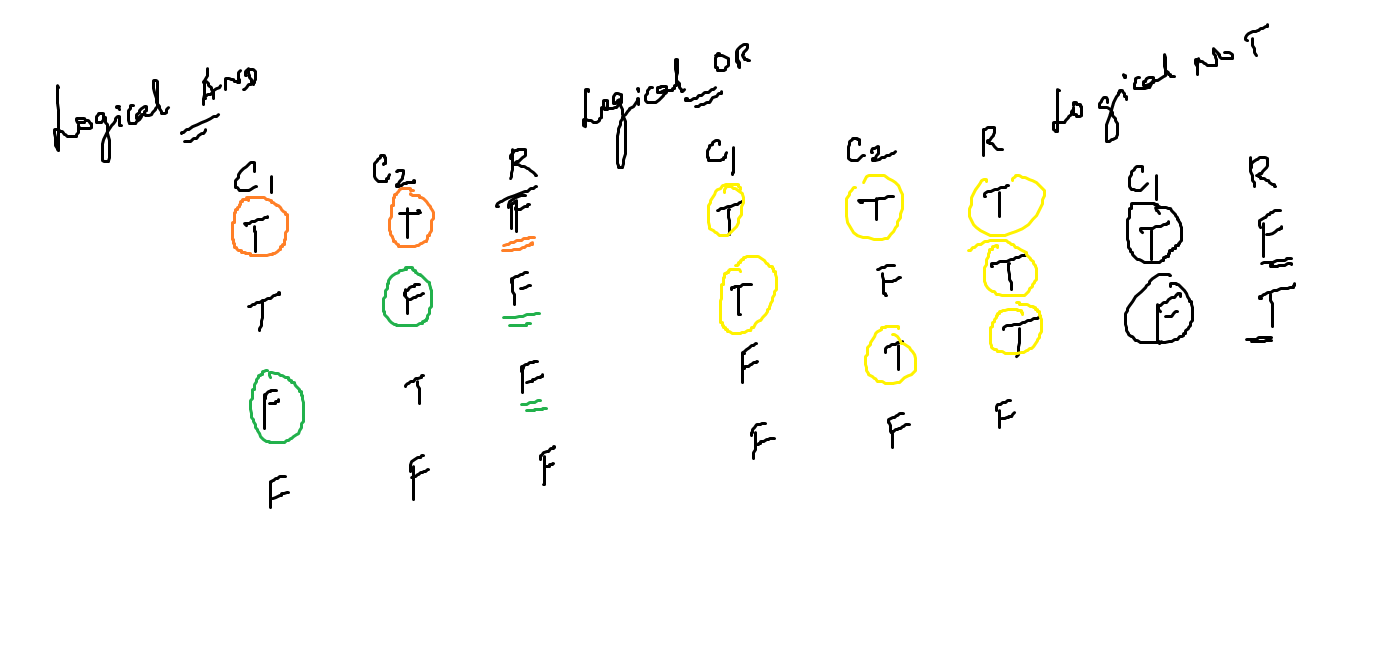 Logical AND
C1 C2 R
T T T
T F F
F T F
F F F
Logical OR
C1 C2 R
T T T
T F T
F T T
F F F
Logical NOT
C1 R
T F
F T